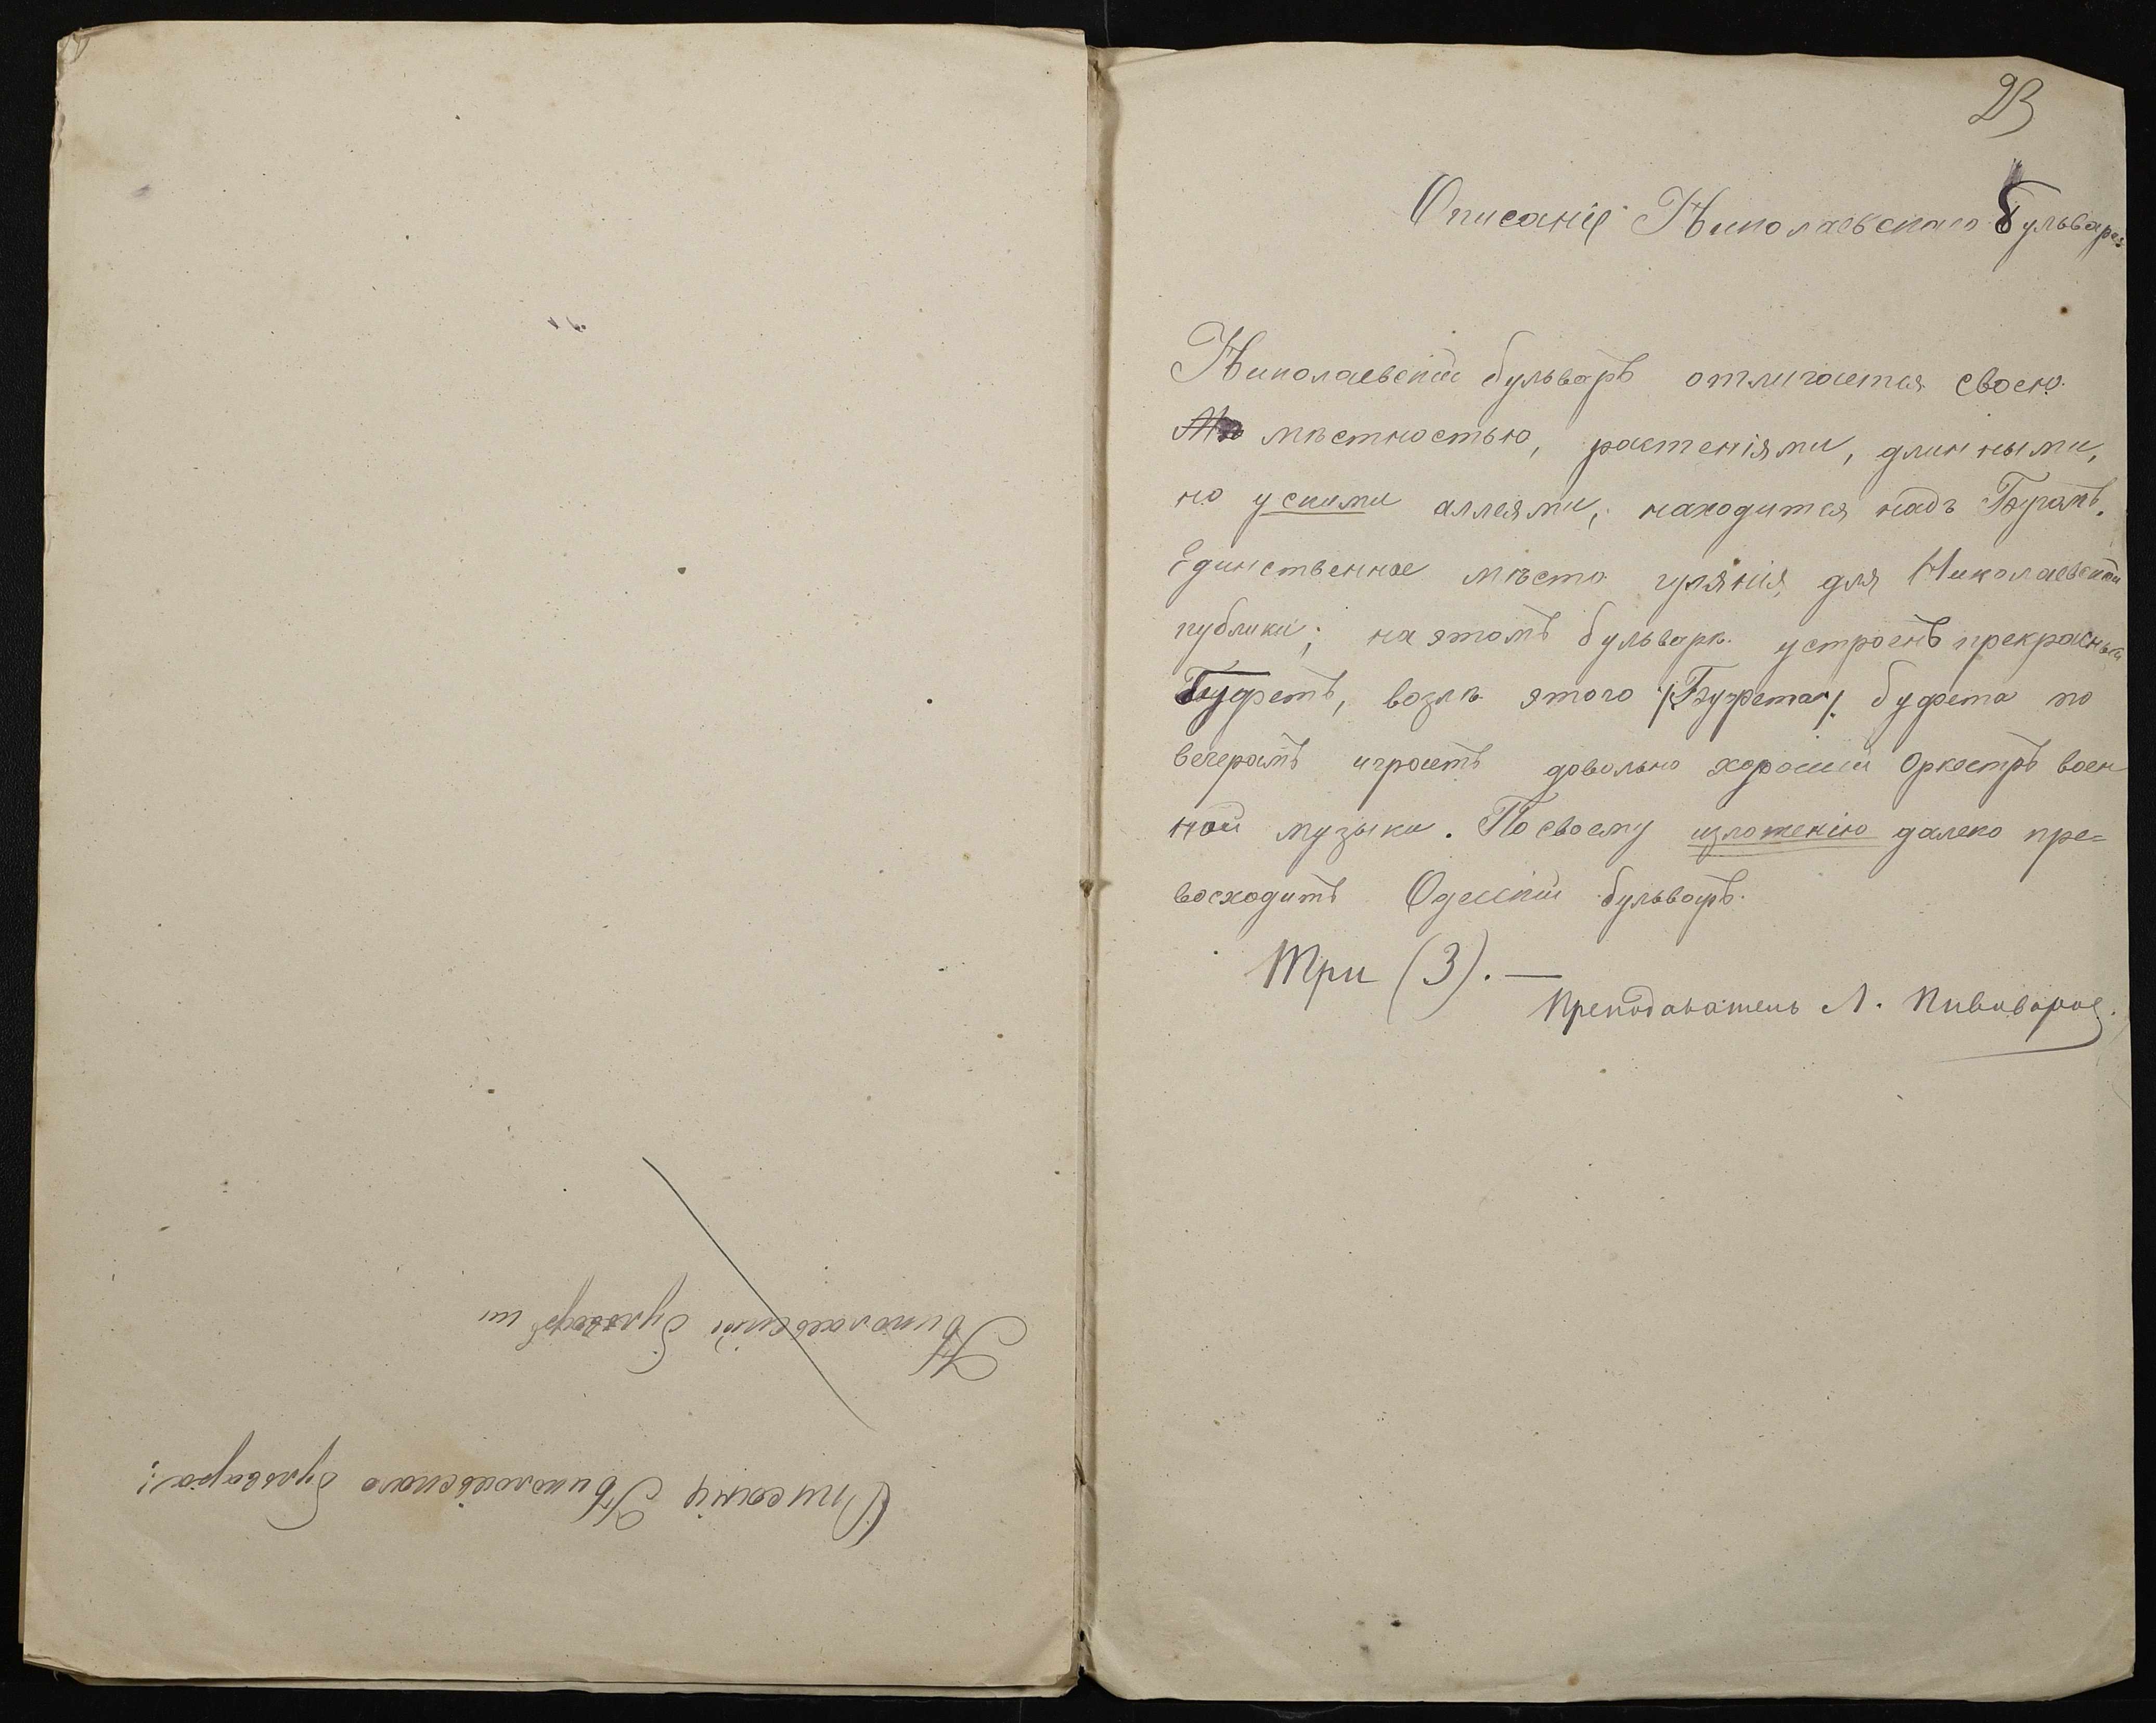 Николаевскій бульваръ ш
Описаніе Николаевскаго бульвара:
23
Описаніе Николаевскаго Бульвара
Николаевскій бульваръ отличается своею
мѣстностью, растеніями, длинными,
но ускими аллеями, находится надъ Бугомъ.
Единственное мѣсто гулянія для Николаевской
публики; на этомъ бульварѣ устроенъ прекрасный
Буфетъ, возлѣ этого /Буфета/ буфета по
вечерамъ играетъ довольно хорошій Оркестръ воен
ной музыки. По своему изложенію далеко пре=
восходитъ Одесскій бульваръ.
Три (3). —
Преподаватель Л. Пивоваров.